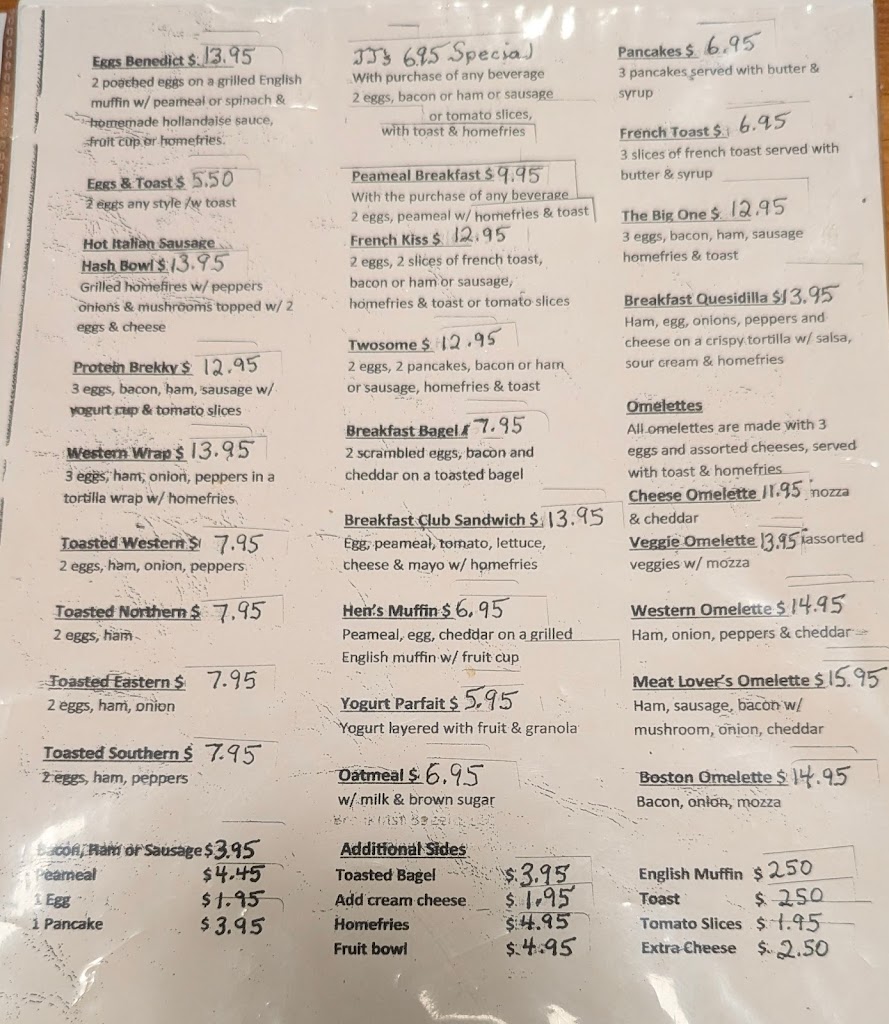 Eggs Benedict $ 13.95
2 poached eggs on a grilled English
muffin w/ peameal or spinach &
homemade hollandaise sauce,
fruit cup or homefries.
Eggs & Toast $ 5.50
2 eggs any style /w toast
Hot Italian Sausage
Hash Bowl $ 13.95
Grilled homefires w/ peppers
onions & mushrooms topped w/ 2
eggs & cheese
Protein Brekky $ 12.95
3 eggs, bacon, ham, sausage w/
yogurt cup & tomato slices
Western Wrap $ 13.95
3 eggs, ham, onion, peppers in a
tortilla wrap w/ homefries
Toasted Western $ 7.95
2 eggs, ham, onion, peppers
Toasted Northern $ 7.95
2 eggs, ham
Toasted Eastern $ 7.95
2 eggs, ham, onion
Toasted Southern $ 7.95
2 eggs, ham, peppers
Bacon, Ham or Sausage $3.95
Peameal $4.45
1 Egg $1.95
1 Pancake $3.95
JJ's 6.95 Special
With purchase of any beverage
2 eggs, bacon or ham or sausage
or tomato slices,
with toast & homefries
Peameal Breakfast $ 9.95
With the purchase of any beverage
2 eggs, peameal w/ homefries & toast
French Kiss $ 12.95
2 eggs, 2 slices of french toast,
bacon or ham or sausage,
homefries & toast or tomato slices
Twosome $ 12.95
2 eggs, 2 pancakes, bacon or ham
or sausage, homefries & toast
Breakfast Bagel $ 7.95
2 scrambled eggs, bacon and
cheddar on a toasted bagel
Breakfast Club Sandwich $ 13.95
Egg, peameal, tomato, lettuce,
cheese & mayo w/ homefries
Hen's Muffin $ 6.95
Peameal, egg, cheddar on a grilled
English muffin w/ fruit cup
Yogurt Parfait $ 5.95
Yogurt layered with fruit & granola
Oatmeal $ 6.95
w/ milk & brown sugar
Additional Sides
Toasted Bagel $ 3.95
Add cream cheese $ 1.95
Homefries $ 4.95
Fruit bowl $ 4.95
Pancakes $ 6.95
3 pancakes served with butter &
syrup
French Toast $ 6.95
3 slices of french toast served with
butter & syrup
The Big One $ 12.95
3 eggs, bacon, ham, sausage
homefries & toast
Breakfast Quesidilla $13.95
Ham, egg, onions, peppers and
cheese on a crispy tortilla w/ salsa,
sour cream & homefries
Omelettes
All omelettes are made with 3
eggs and assorted cheeses, served
with toast & homefries
Cheese Omelette 11.95 mozza
& cheddar
Veggie Omelette 13.95 assorted
veggies w/ mozza
Western Omelette $ 14.95
Ham, onion, peppers & cheddar
Meat Lover's Omelette $ 15.95
Ham, sausage, bacon w/
mushroom, onion, cheddar
Boston Omelette $ 14.95
Bacon, onion, mozza
English Muffin $ 250
Toast $ 250
Tomato Slices $ 1.95
Extra Cheese $ 2.50